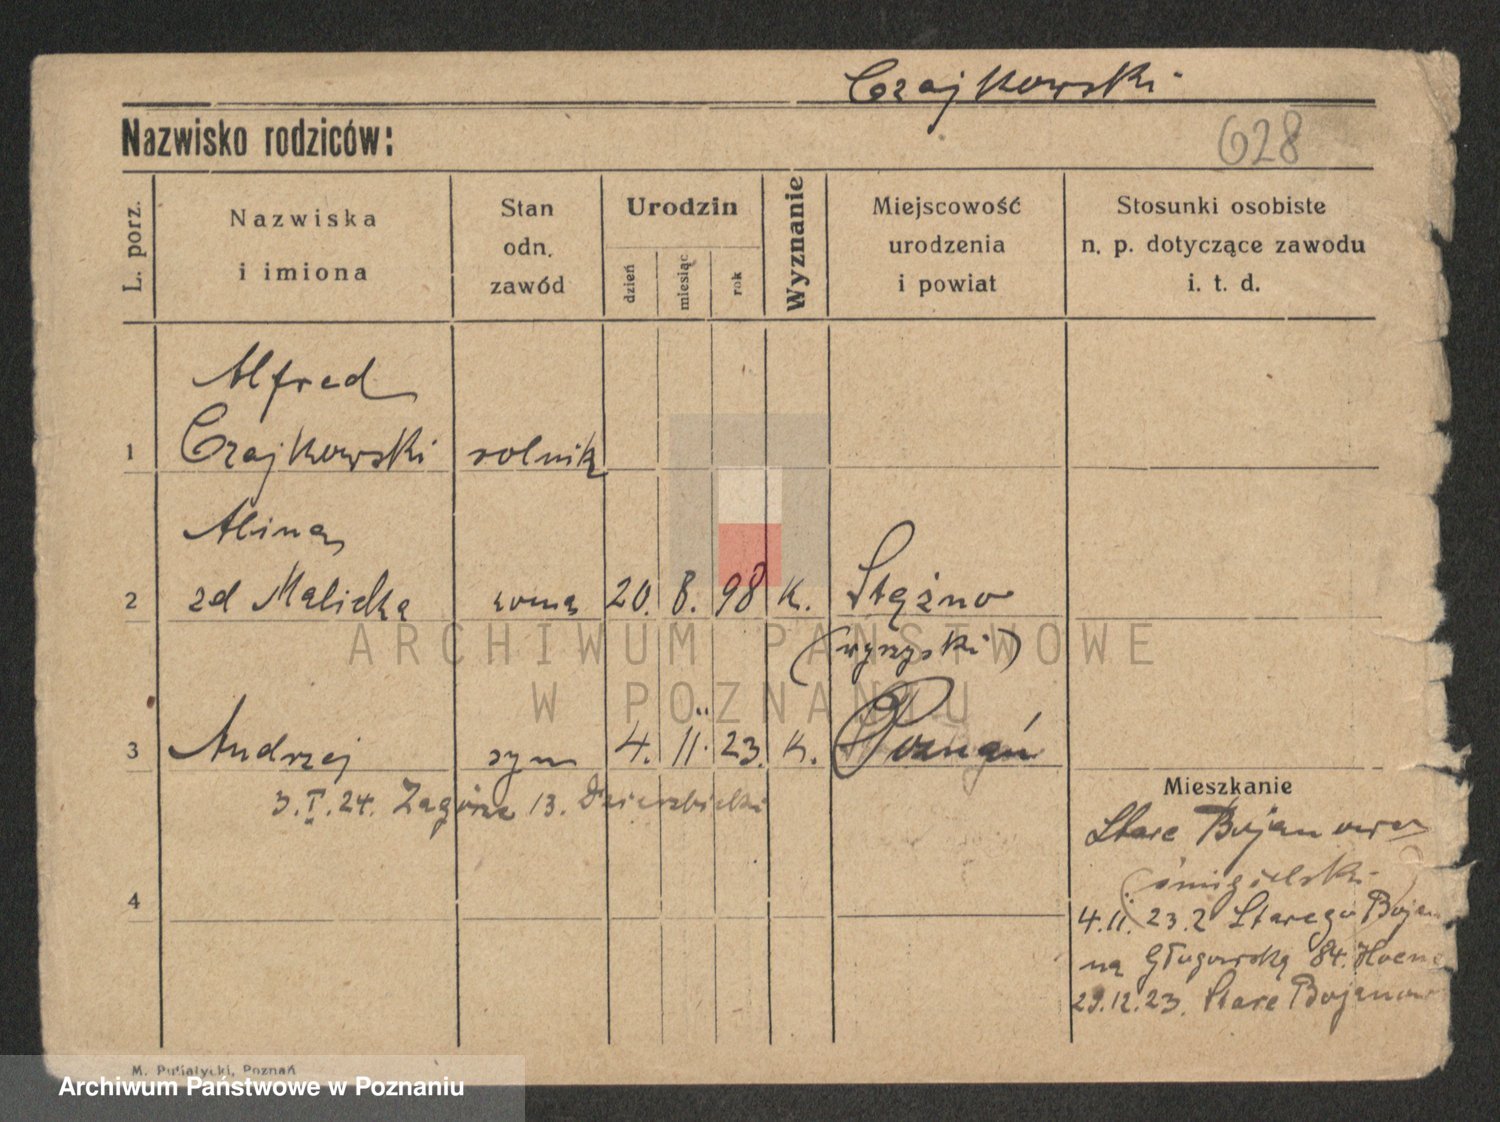 Czajkowski
Nazwisko rodziców:
628
L. porz.
Nazwiska
i imiona
Stan
odn.
zawód
Urodzin
dzień
miesiąc
rok
Wyznanie
Miejscowość
urodzenia
i powiat
Stosunki osobiste
n. p. dotyczące zawodu
i. t. d.
Alfred
1 Czajkowski rolnik
Alina
2 zd Malicka żona 20. 8. 98 k. Stężno
(wyrzyski)
3 Andrzej syn 4. 11. 23. k. Poznań
3.I.24. Zagórze 13.
4
Mieszkanie
Stare Bojanowo
śmigielski
4.11.23. z Starego Bojan
na Głogowską 84.
29.12.23. Stare Bojanow
M. Putiatycki, Poznań
ARCHIWUM PAŃSTWOWE
W POZNANIU
Archiwum Państwowe w Poznaniu